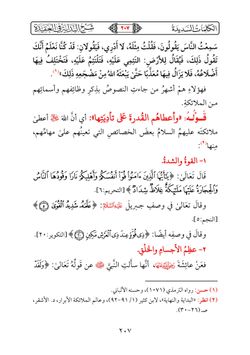 الكلمات السديدة
٢٠٧
شرح البداية في العقيدة
سَمِعْتُ النَّاسَ يَقُولُونَ، فَقُلْتُ مِثْلَهُ، لَا أَدْرِي، فَيَقُولَانِ: قَدْ كُنَّا نَعْلَمُ أَنَّكَ
تَقُولُ ذَلِكَ، فَيُقَالُ لِلأَرْضِ: التَئِمِي عَلَيْهِ، فَتَلْتَئِمُ عَلَيْهِ، فَتَخْتَلِفُ فِيهَا
أَضْلَاعُهُ، فَلَا يَزَالُ فِيهَا مُعَذَّبًا حَتَّى يَبْعَثَهُ اللهُ مِنْ مَضْجَعِهِ ذَلِكَ»(١).
فهؤلاءِ همْ أشهرُ من جاءتِ النصوصُ بذِكرِ وظائفِهم وأسمائِهم
من الملائكةِ.
قَـولُـهُ: «وأعطاهُم القُدرةَ على تأديَتِها»: أي أنَّ اللهَ أعطى
ملائكتَه عليهمُ السلامُ بعضَ الخصائصِ التي تعينُهم على مهامِّهم،
منها(٢):
١- القوةُ والشدةُ.
قالَ تعالىٰ: ﴿يَٰٓأَيُّهَا ٱلَّذِينَ ءَامَنُوا۟ قُوٓا۟ أَنفُسَكُمْ وَأَهْلِيكُمْ نَارًا وَقُودُهَا ٱلنَّاسُ
وَٱلْحِجَارَةُ عَلَيْهَا مَلَٰٓئِكَةٌ غِلَاظٌ شِدَادٌ﴾ [التحريم:٦].
وقالَ تعالىٰ في وصفِ جبريلَ عليه السلام: ﴿عَلَّمَهُۥ شَدِيدُ ٱلْقُوَىٰ ۝٥﴾
[النجم:٥].
وقالَ في وصفِه أيضًا: ﴿ذِى قُوَّةٍ عِندَ ذِى ٱلْعَرْشِ مَكِينٍ ۝٢٠﴾ [التكوير:٢٠].
٢- عظمُ الأجسامِ والخلْقِ.
فعَنْ عائشةَ رضي الله عنها، أنها سألتِ النَّبيَّ ﷺ عن قولِهِ تَعَالىٰ: ﴿وَلَقَدْ
(١) حسن: رواه الترمذي (١٠٧١)، وحسنه الألباني.
(٢) انظر: «البداية والنهاية»، لابن كثير (١/ ٩١-٩٢)، وعالم الملائكة الأبرار، د. الأشقر،
صـ (٢٦-٣٠).
٢٠٧